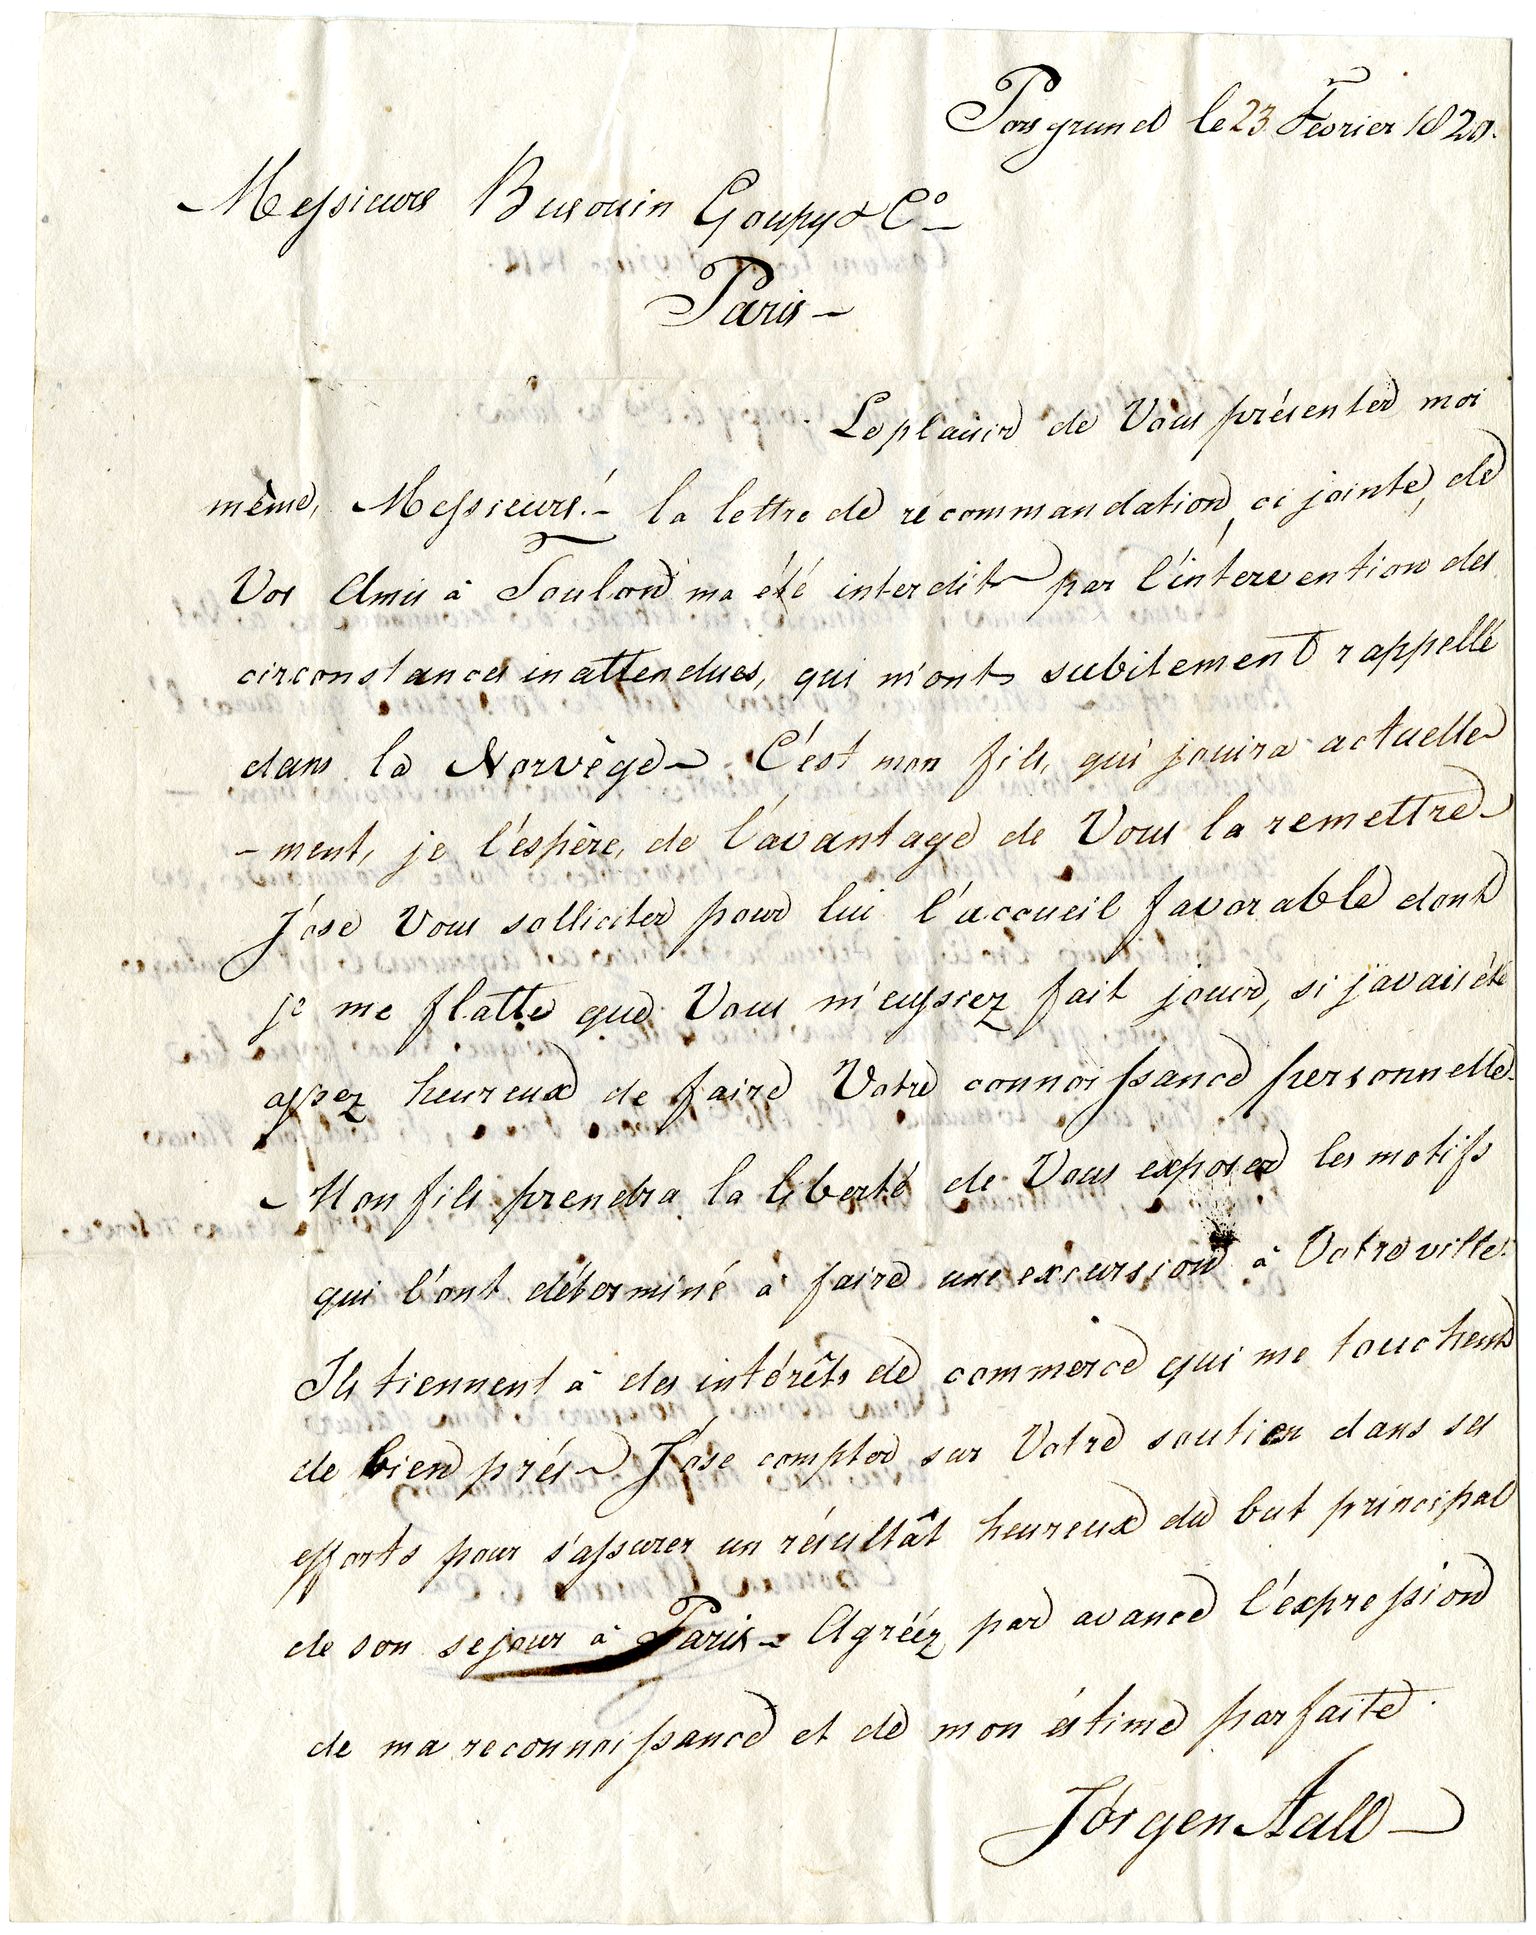 Porsgrund le 23 Fevrier 1820.
Messieurs Busouin Goupy & Co
Paris
Le plaisir de Vous présenter moi
même, Messieurs! la lettre de récommandation, ci jointe, de
Vos Amis à Toulon m'a été interdit par l'intervention des
circonstances inattendues, qui m'ont subitement rappellé
dans la Norvège. C'est mon fils, qui jouira actuelle
-ment, je l'éspère, de l'avantage de Vous la remettre
J'ose Vous solliciter pour lui l'accueil favorable dont
je me flatte que Vous m'eussiez fait jouir, si j'avais été
assez heureux de faire Votre connoissance personnelle.
Mon fils prendra la liberté de Vous exposer les motifs
qui l'ont déterminé à faire une excursion à Votre ville.
Ils tiennent à des intérêts de commerce qui me touchent
de bien prés. J'ose compter sur Votre soutien dans ses
efforts pour s'assurer un résultât heureux du but principal
de son sejour à Paris. Agrééz par avance l'éxpression
de ma reconnoissance et de mon éstime parfaite.
Jörgen Aall